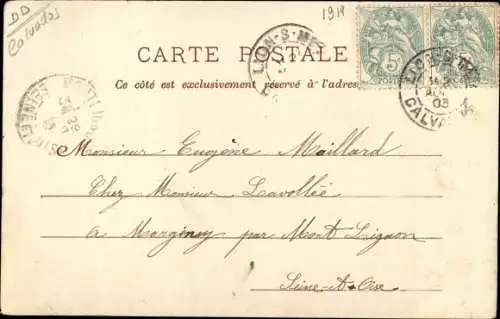 DD
Calvados
1914
CARTE POSTALE
Ce côté est exclusivement réservé à l'adresse
LION-S-MER
5
03
CALVADOS
Monsieur Eugène Maillard
Chez Monsieur Lavollée
à Margency par Mont Lignon
Seine-et-Oise